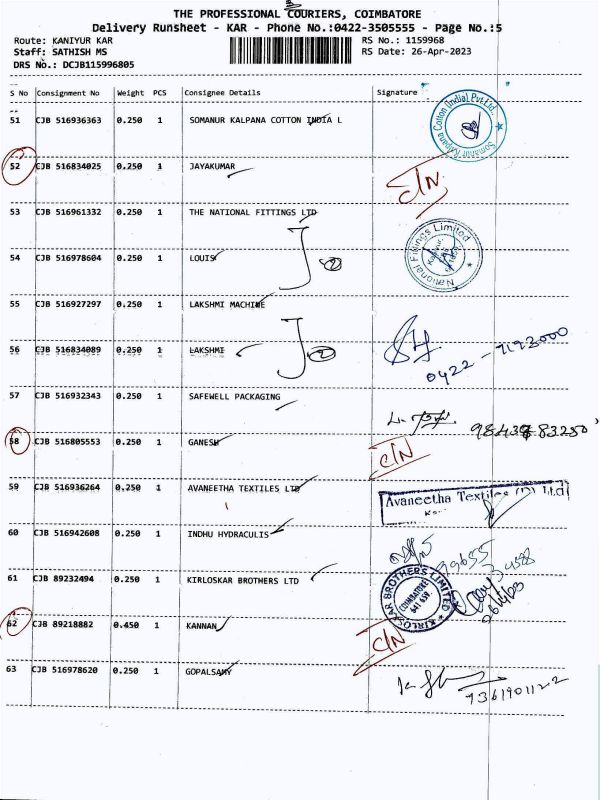 THE PROFESSIONAL COURIERS, COIMBATORE
Delivery Runsheet - KAR - Phone No.:0422-3505555 - Page No.:5
Route: KANIYUR KAR RS No.: 1159968
Staff: SATHISH MS RS Date: 26-Apr-2023
DRS No.: DCJB115996805
S No Consignment No Weight PCS Consignee Details Signature
51 CJB 516936363 0.250 1 SOMANUR KALPANA COTTON INDIA L
Somanur Kalpana Cotton (India) Pvt.Ltd.
52 CJB 516834025 0.250 1 JAYAKUMAR C/N
53 CJB 516961332 0.250 1 THE NATIONAL FITTINGS LTD
National Fittings Limited
54 CJB 516978604 0.250 1 LOUIS 2
55 CJB 516927297 0.250 1 LAKSHMI MACHINE
56 CJB 516834089 0.250 1 LAKSHMI 2
57 CJB 516932343 0.250 1 SAFEWELL PACKAGING
58 CJB 516805553 0.250 1 GANESH C/N
59 CJB 516936264 0.250 1 AVANEETHA TEXTILES LTD
Avaneetha Textiles (P) Ltd
60 CJB 516942608 0.250 1 INDHU HYDRAULIS
61 CJB 89232494 0.250 1 KIRLOSKAR BROTHERS LTD
KIRLOSKAR BROTHERS LIMITED
COIMBATORE
641 659
62 CJB 89218882 0.450 1 KANNAN C/N
63 CJB 516978620 0.250 1 GOPALSAMY
7361901122